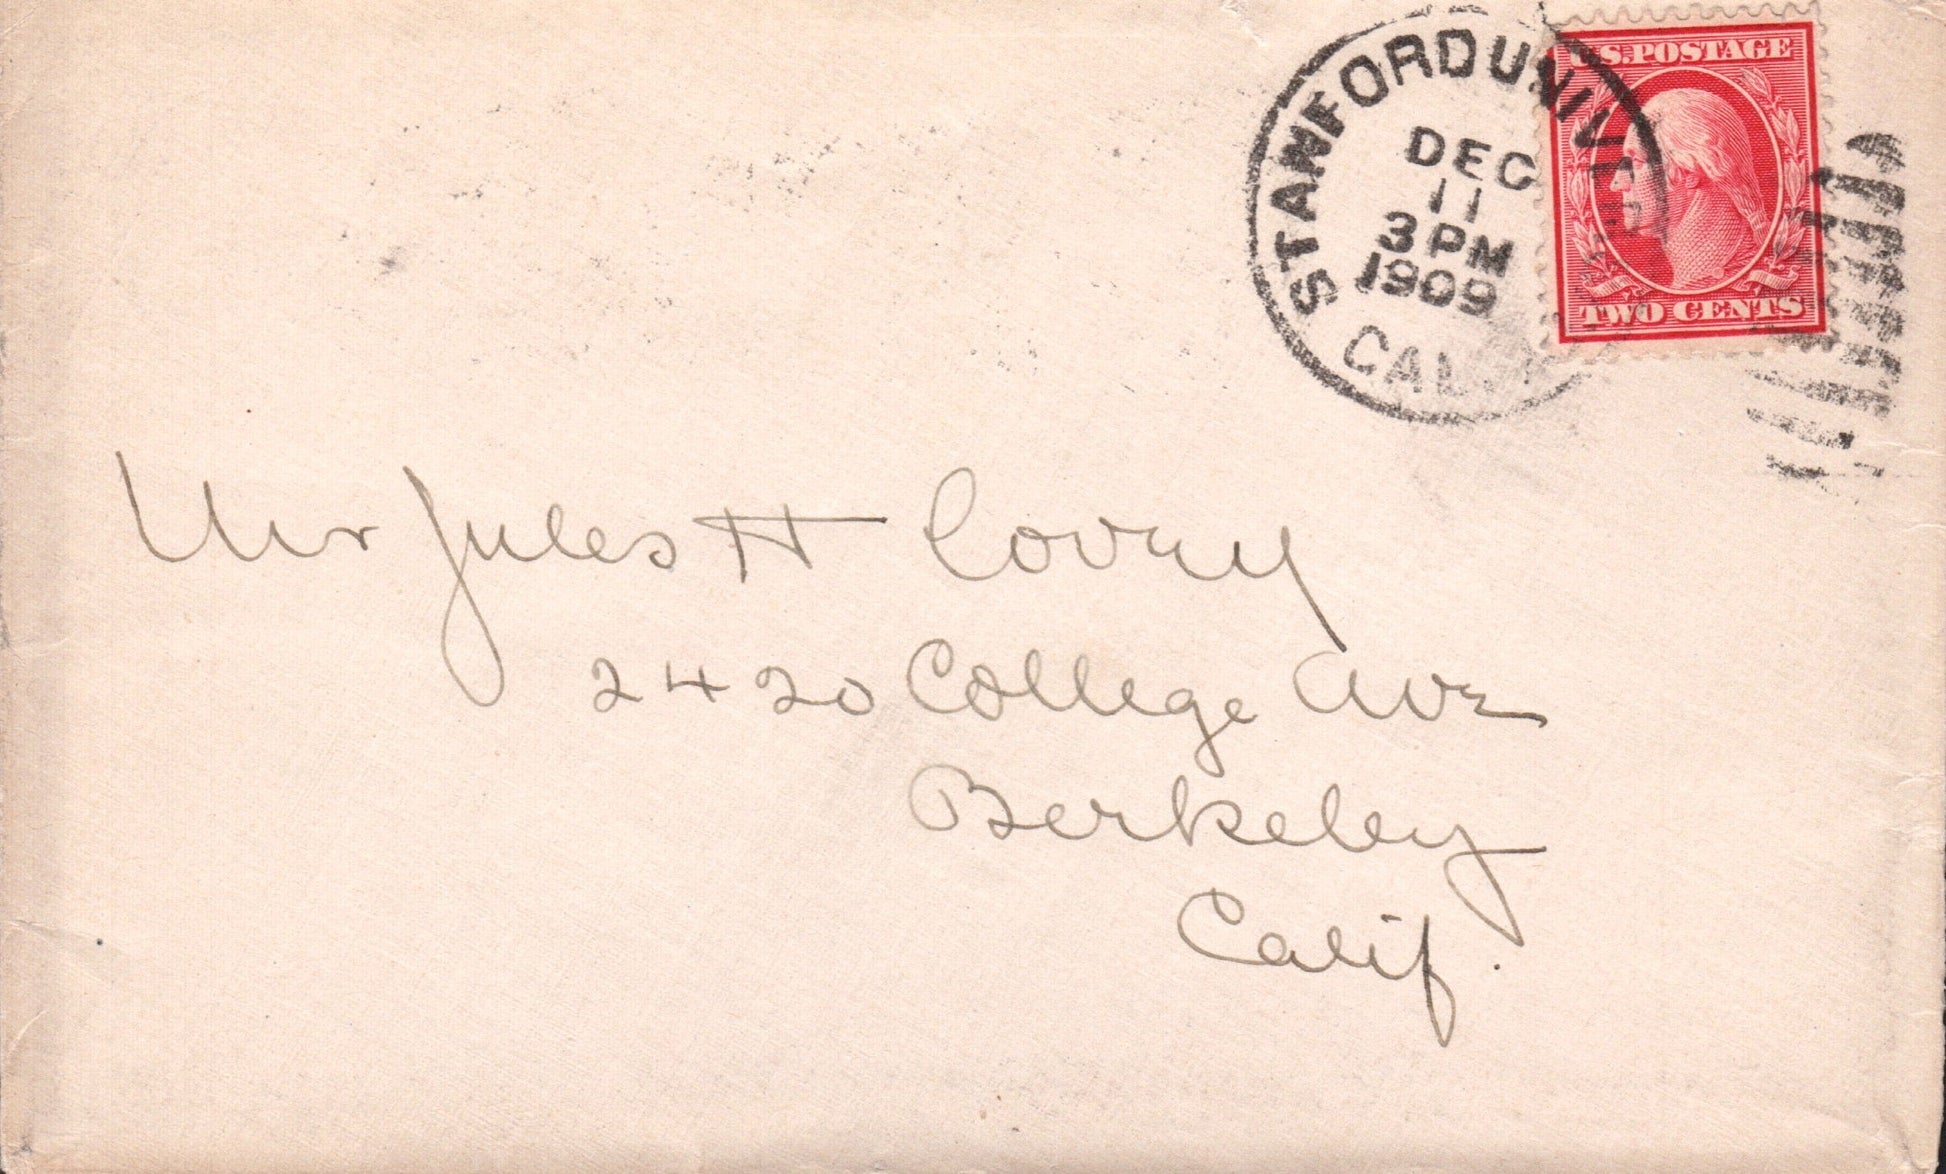 STANFORD UNIVER
DEC
11
3 PM
1909
CAL.
U.S. POSTAGE
TWO CENTS
Mr Jules H Covey
2420 College Ave
Berkeley
Calif.